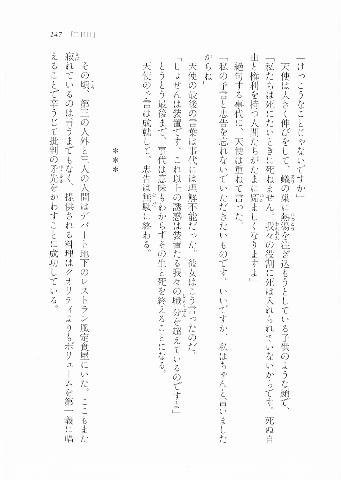 247　［二日目］
「けっこうなことじゃないですか」
　天使は大きく伸びをして、蟻の巣に熱湯を注ぎ込もうとしている子供のような顔で、
「私たちは死にたいときに死ねません。我々の役割に死は入れられていないからです。死ぬ自
由と権利を持つ人間たちがたまに羨ましくなりますよ」
　絶句する事代に、天使は重ねて言った。
「私の予言と忠告を忘れないでいただきたいものです。いいですか、私はちゃんと言いました
からね」
　天使の最後の言葉は事代には理解不能だった。彼女はこう言ったのだ。
「しょせんは装置です。これ以上の誘惑は装置たる我々の職分を超えているのです」
　とうとう最後まで、事代は意味もわからずその生と死を終えることになる。
　天使の予言は成就して、忠告は無駄に終わる。
＊＊＊
　その頃、第三の人外と三人の人間はデパート地下のレストラン風定食屋にいた。ここもまた
寂れているのは言うまでもなく、提供される料理はクオリティよりもボリュームを第一義に唱
えることで辛うじて批判の矛先をかわすことに成功している。